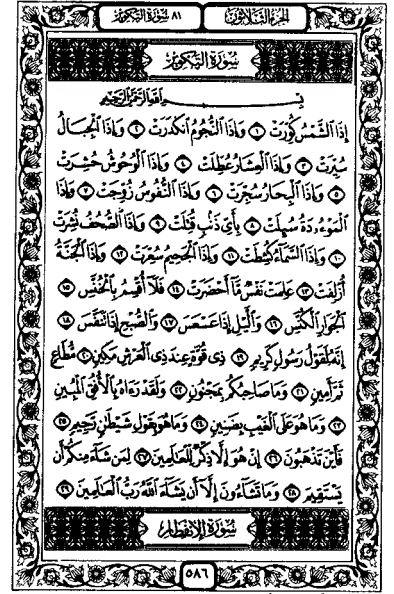 الجزء الثلاثون
٨١ سورة التكوير
سورة التكوير
بسم الله الرحمن الرحيم
إِذَا ٱلشَّمْسُ كُوِّرَتْ ١ وَإِذَا ٱلنُّجُومُ ٱنكَدَرَتْ ٢ وَإِذَا ٱلْجِبَالُ
سُيِّرَتْ ٣ وَإِذَا ٱلْعِشَارُ عُطِّلَتْ ٤ وَإِذَا ٱلْوُحُوشُ حُشِرَتْ
٥ وَإِذَا ٱلْبِحَارُ سُجِّرَتْ ٦ وَإِذَا ٱلنُّفُوسُ زُوِّجَتْ ٧ وَإِذَا
ٱلْمَوْءُۥدَةُ سُئِلَتْ ٨ بِأَىِّ ذَنۢبٍ قُتِلَتْ ٩ وَإِذَا ٱلصُّحُفُ نُشِرَتْ
١٠ وَإِذَا ٱلسَّمَآءُ كُشِطَتْ ١١ وَإِذَا ٱلْجَحِيمُ سُعِّرَتْ ١٢ وَإِذَا ٱلْجَنَّةُ
أُزْلِفَتْ ١٣ عَلِمَتْ نَفْسٌ مَّآ أَحْضَرَتْ ١٤ فَلَآ أُقْسِمُ بِٱلْخُنَّسِ ١٥
ٱلْجَوَارِ ٱلْكُنَّسِ ١٦ وَٱلَّيْلِ إِذَا عَسْعَسَ ١٧ وَٱلصُّبْحِ إِذَا تَنَفَّسَ ١٨
إِنَّهُۥ لَقَوْلُ رَسُولٍ كَرِيمٍ ١٩ ذِى قُوَّةٍ عِندَ ذِى ٱلْعَرْشِ مَكِينٍ ٢٠ مُّطَاعٍ
ثَمَّ أَمِينٍ ٢١ وَمَا صَاحِبُكُم بِمَجْنُونٍ ٢٢ وَلَقَدْ رَءَاهُ بِٱلْأُفُقِ ٱلْمُبِينِ
٢٣ وَمَا هُوَ عَلَى ٱلْغَيْبِ بِضَنِينٍ ٢٤ وَمَا هُوَ بِقَوْلِ شَيْطَٰنٍ رَّجِيمٍ ٢٥
فَأَيْنَ تَذْهَبُونَ ٢٦ إِنْ هُوَ إِلَّا ذِكْرٌ لِّلْعَٰلَمِينَ ٢٧ لِمَن شَآءَ مِنكُمْ أَن
يَسْتَقِيمَ ٢٨ وَمَا تَشَآءُونَ إِلَّآ أَن يَشَآءَ ٱللَّهُ رَبُّ ٱلْعَٰلَمِينَ ٢٩
سورة الانفطار
٥٨٦